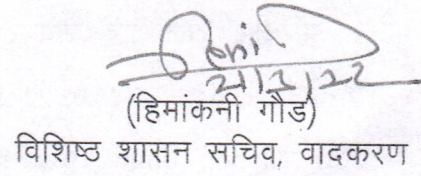 (हिमांकनी गौड)
विशिष्ठ शासन सचिव, वादकरण